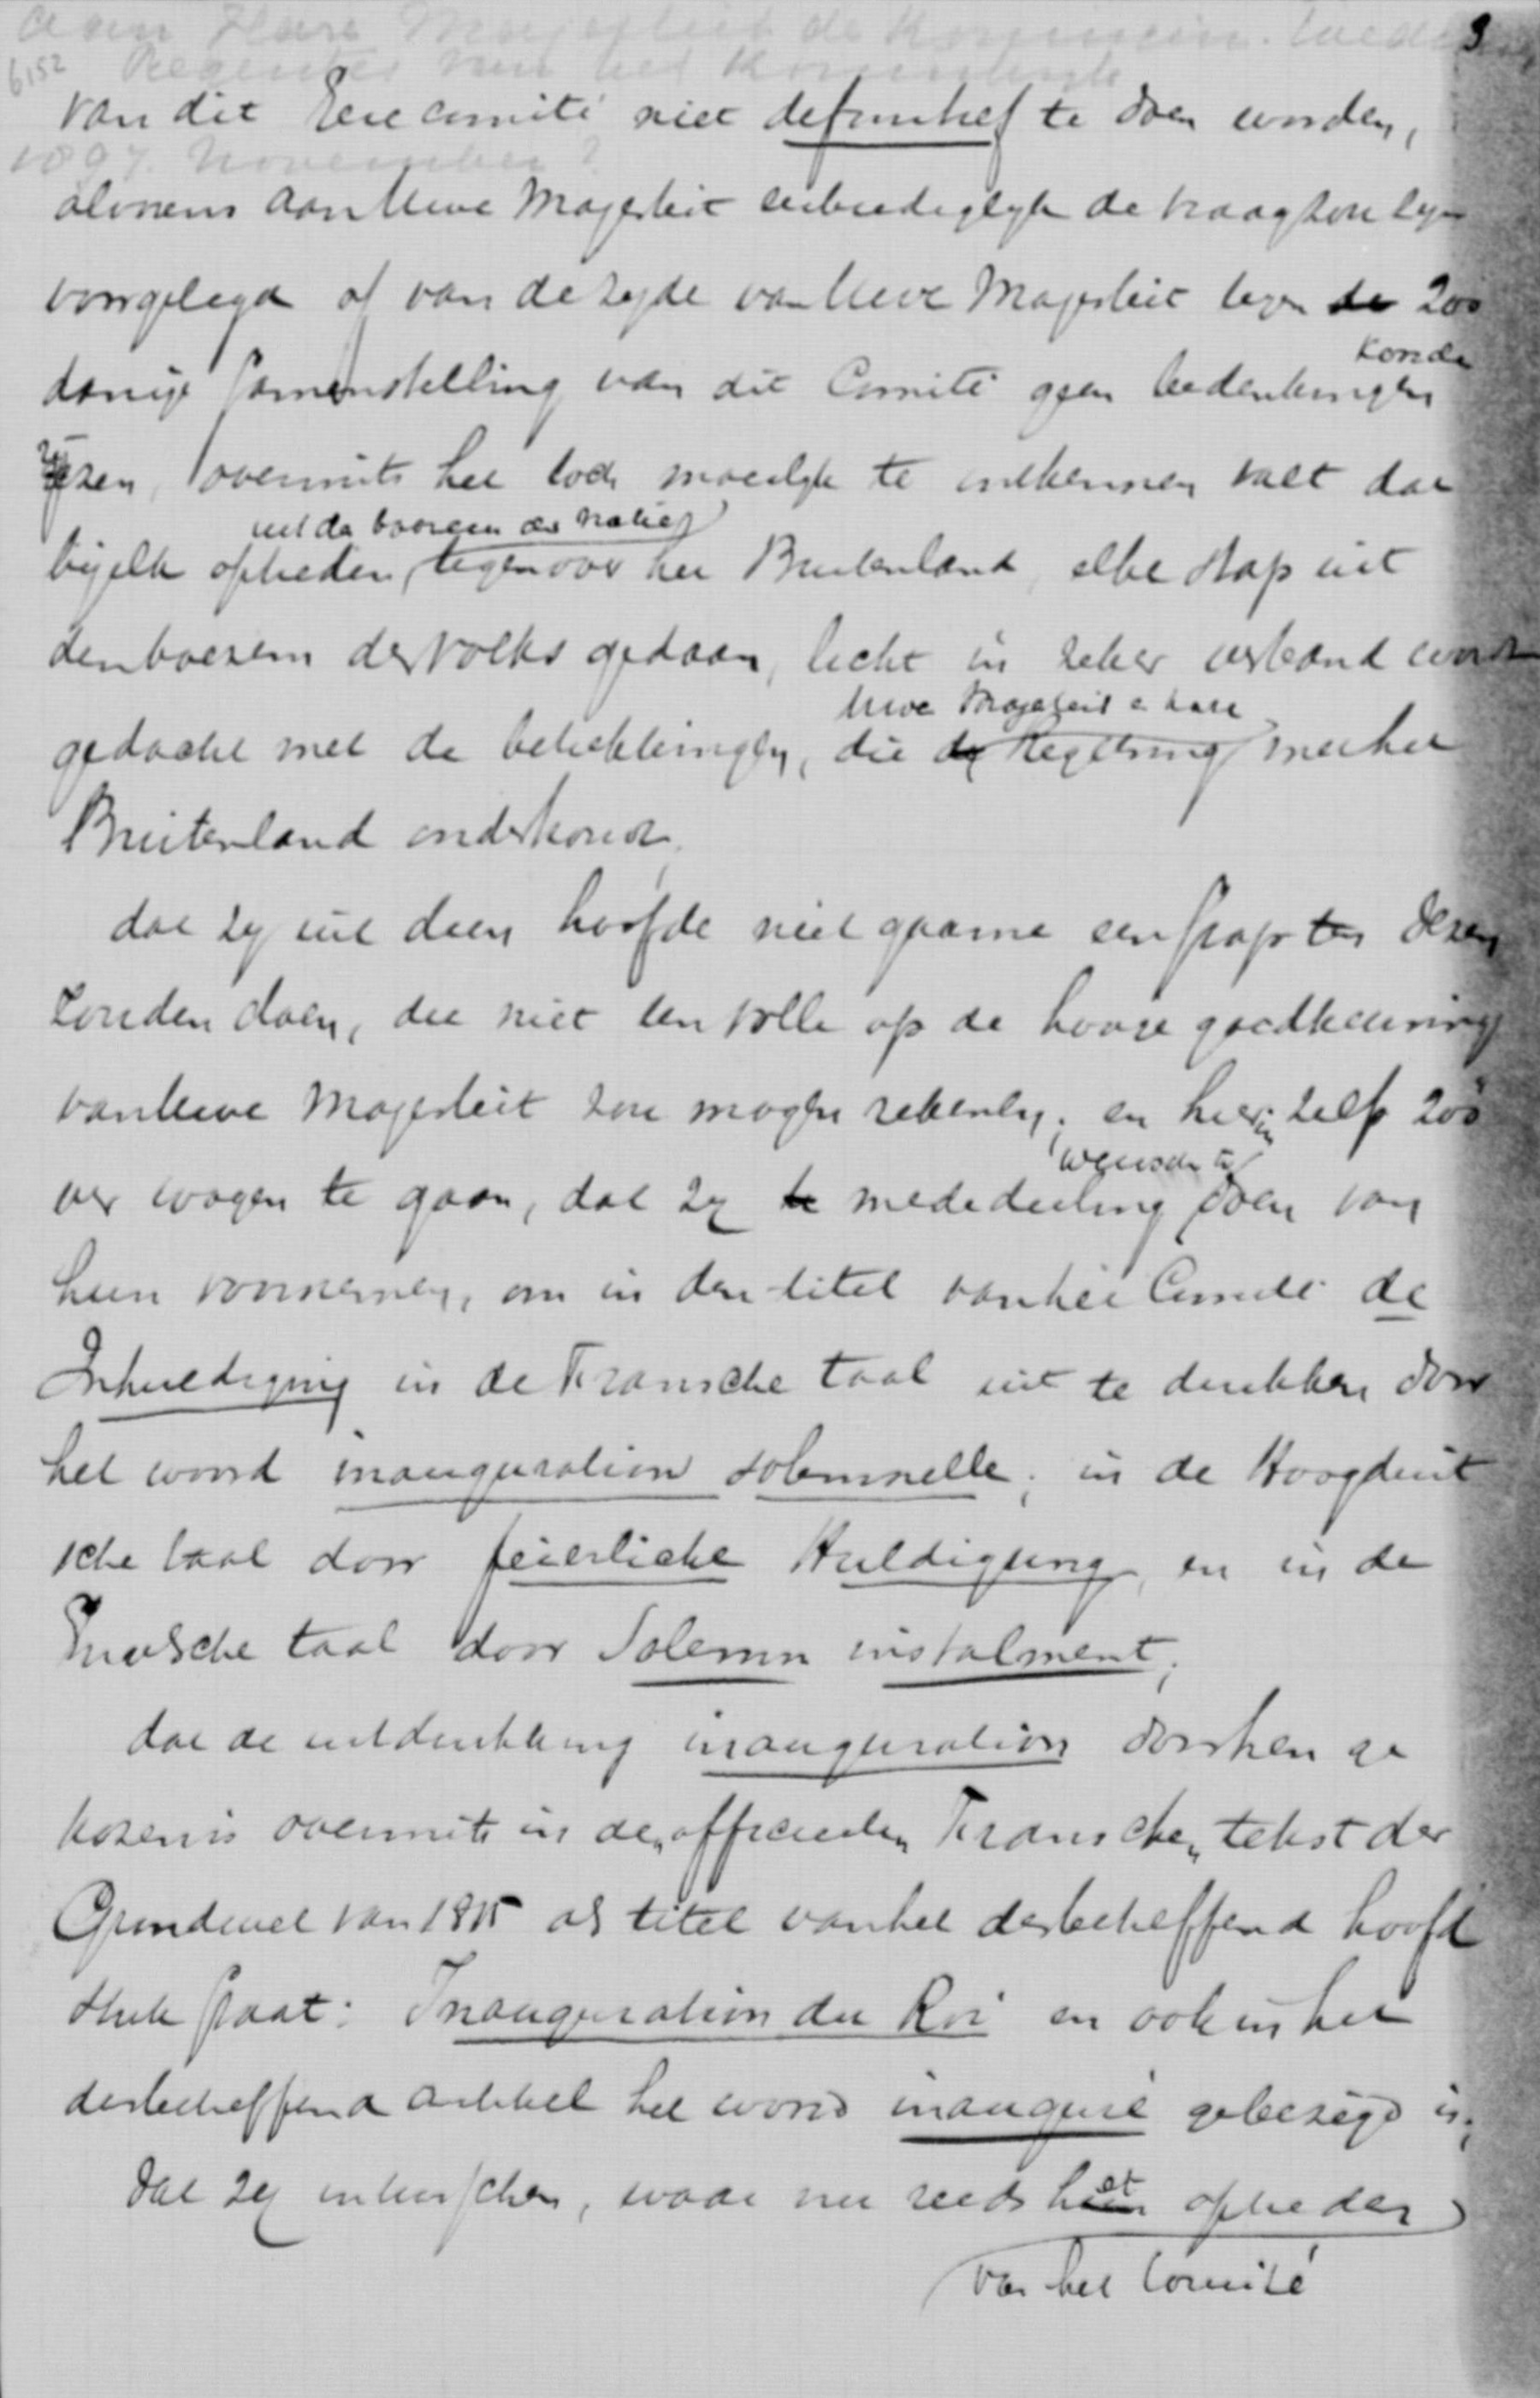 Aan Hare Majesteit de Koningin. Weduwe 3
6152 Regentes van het Koninkrijk
van dit Eere comité niet definitief te doen worden,
1897. November?
alvorens aan Uwe Majesteit eerbiediglyk de vraag zou zyn
voorgelegd of van de zyde van Uwe Majesteit tegen de zoo
danige samenstelling van dit Comité geen bedenkingen konde
ryzen, overmits het toch moeilyk te ontkennen valt dat
uit de boezem der natie
bij elk optreden, tegenover het Buitenland, elke stap uit
den boezem des volks gedaan, licht in zeker verband wordt
Uwe Majesteit & hare
gedacht met de betrekkingen, die de Regeering met het
Buitenland onderhoudt,
dat zy uit dien hoofde niet gaarne een stap ter dezen
zouden doen, die niet ten volle op de hooge goedkeuring
van Uwe Majesteit zou mogen rekenen; en hierin zelfs zoo
wenschte
ver wogen te gaan, dat zy te mededeeling doen van
hun voornemen, om in den titel van het Comité de
Inhuldiging in de Fransche taal uit te drukken door
het woord inauguration solemnelle; in de Hoogduit
sche taal door feierliche Huldigung, en in de
Engelsche taal door Solemn instalment;
dat de uitdrukking inauguration door hen ge
kozen is overmits in den officieelen Franschen tekst der
Grondwet van 1815 als titel van het desbetreffend hoofd
stuk staat: Inauguration du Roi en ook in het
desbetreffend artikel het woord inauguré gebezigd is;
dat zy intusschen, waar nu reeds het optreden
van het Comité